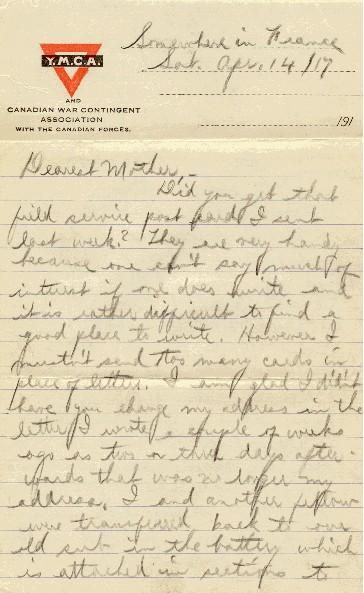 Somewhere in France
Sat. Apr. 14/17
Y.M.C.A.
AND
CANADIAN WAR CONTINGENT
ASSOCIATION
WITH THE CANADIAN FORCES.
191
Dearest Mother,-
Did you get that
field service post card I sent
last week? They are very handy
because one can't say much of
interest if one does write and
it is rather difficult to find a
good place to write. However I
mustn't send too many cards in
place of letters. I am glad I didn't
have you change my address in the
letter I wrote a couple of weeks
ago as two or three days after-
wards that was no longer my
address. I and another fellow
were transferred back to our
old sub in the battery which
is attached in sections to